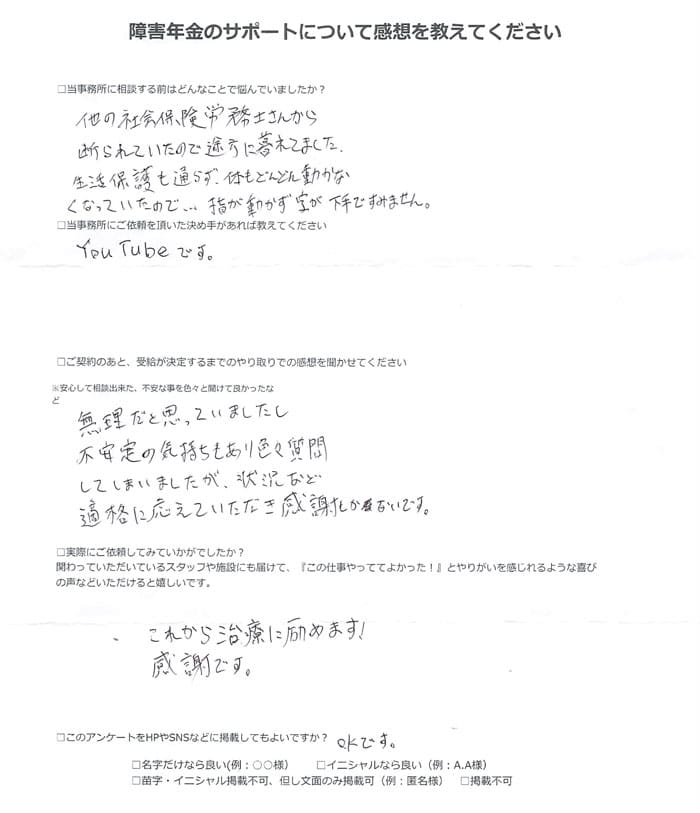 障害年金のサポートについて感想を教えてください
□当事務所に相談する前はどんなことで悩んでいましたか？
他の社会保険労務士さんから
断られていたので途方に暮れてました.
生活保護も通らず、体もどんどん動かな
くなっていたので… 指が動かず字が下手ですみません。
□当事務所にご依頼を頂いた決め手があれば教えてください
YouTubeです。
□ご契約のあと、受給が決定するまでのやり取りでの感想を聞かせてください
※安心して相談出来た、不安な事を色々と聞けて良かったな
ど
無理だと思っていましたし
不安定の気持ちもあり色々質問
してしまいましたが、状況など
適格に応えていただき感謝しかないです。
□実際にご依頼してみていかがでしたか？
関わっていただいているスタッフや施設にも届けて、『この仕事やっててよかった！』とやりがいを感じれるような喜び
の声などいただけると嬉しいです。
これから治療に励めます!
感謝です。
□このアンケートをHPやSNSなどに掲載してもよいですか？ OKです。
□名字だけなら良い(例：○○様） □イニシャルなら良い（例：A.A様）
□苗字・イニシャル掲載不可、但し文面のみ掲載可（例：匿名様） □掲載不可